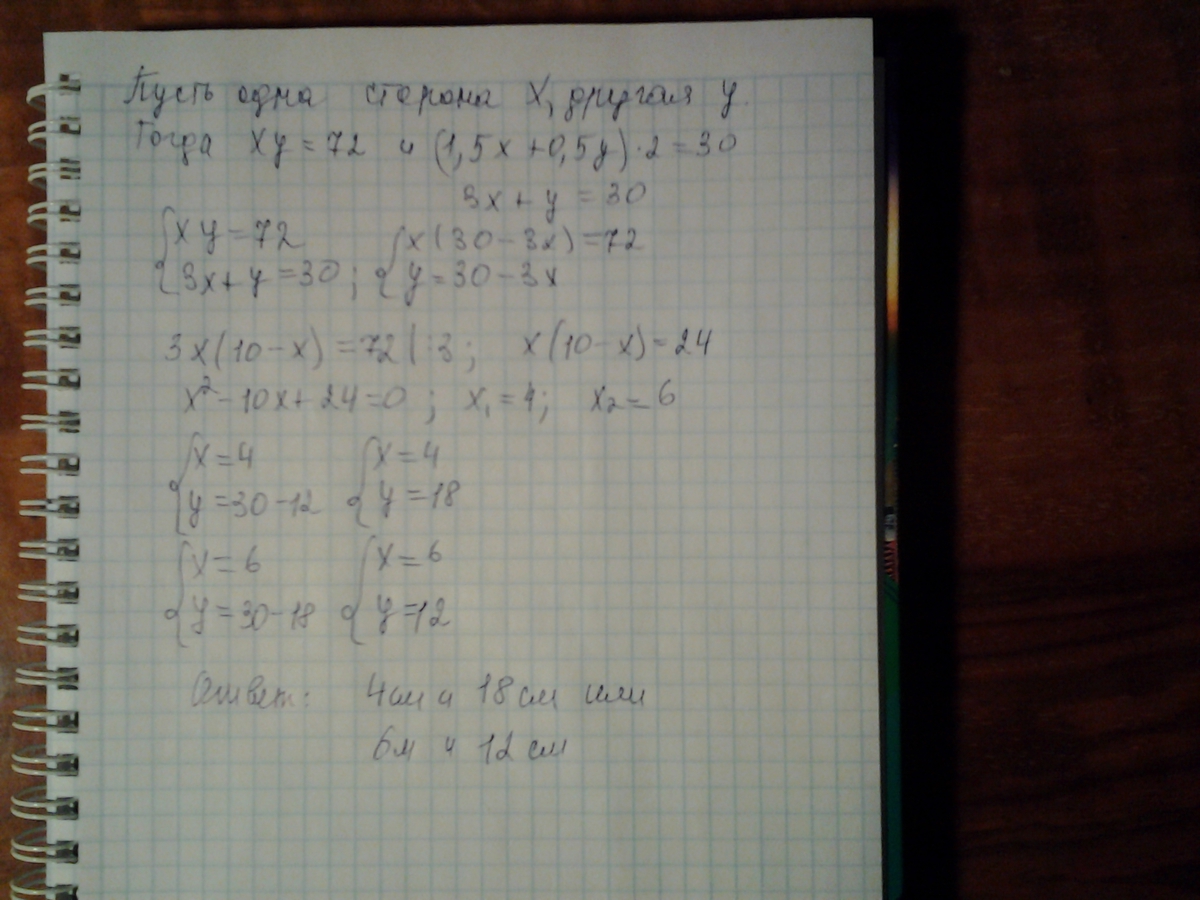 Пусть одна сторона x, другая y.
Тогда xy = 72 и (1,5x + 0,5y) · 2 = 30
3x + y = 30
{ xy = 72 { x(30 - 3x) = 72
{ 3x + y = 30 ; { y = 30 - 3x
3x(10 - x) = 72 | :3 ; x(10 - x) = 24
x² - 10x + 24 = 0 ; x₁ = 4 ; x₂ = 6
{ x = 4 { x = 4
{ y = 30 - 12 { y = 18
{ x = 6 { x = 6
{ y = 30 - 18 { y = 12
Ответ: 4см и 18 см или
6м и 12 см